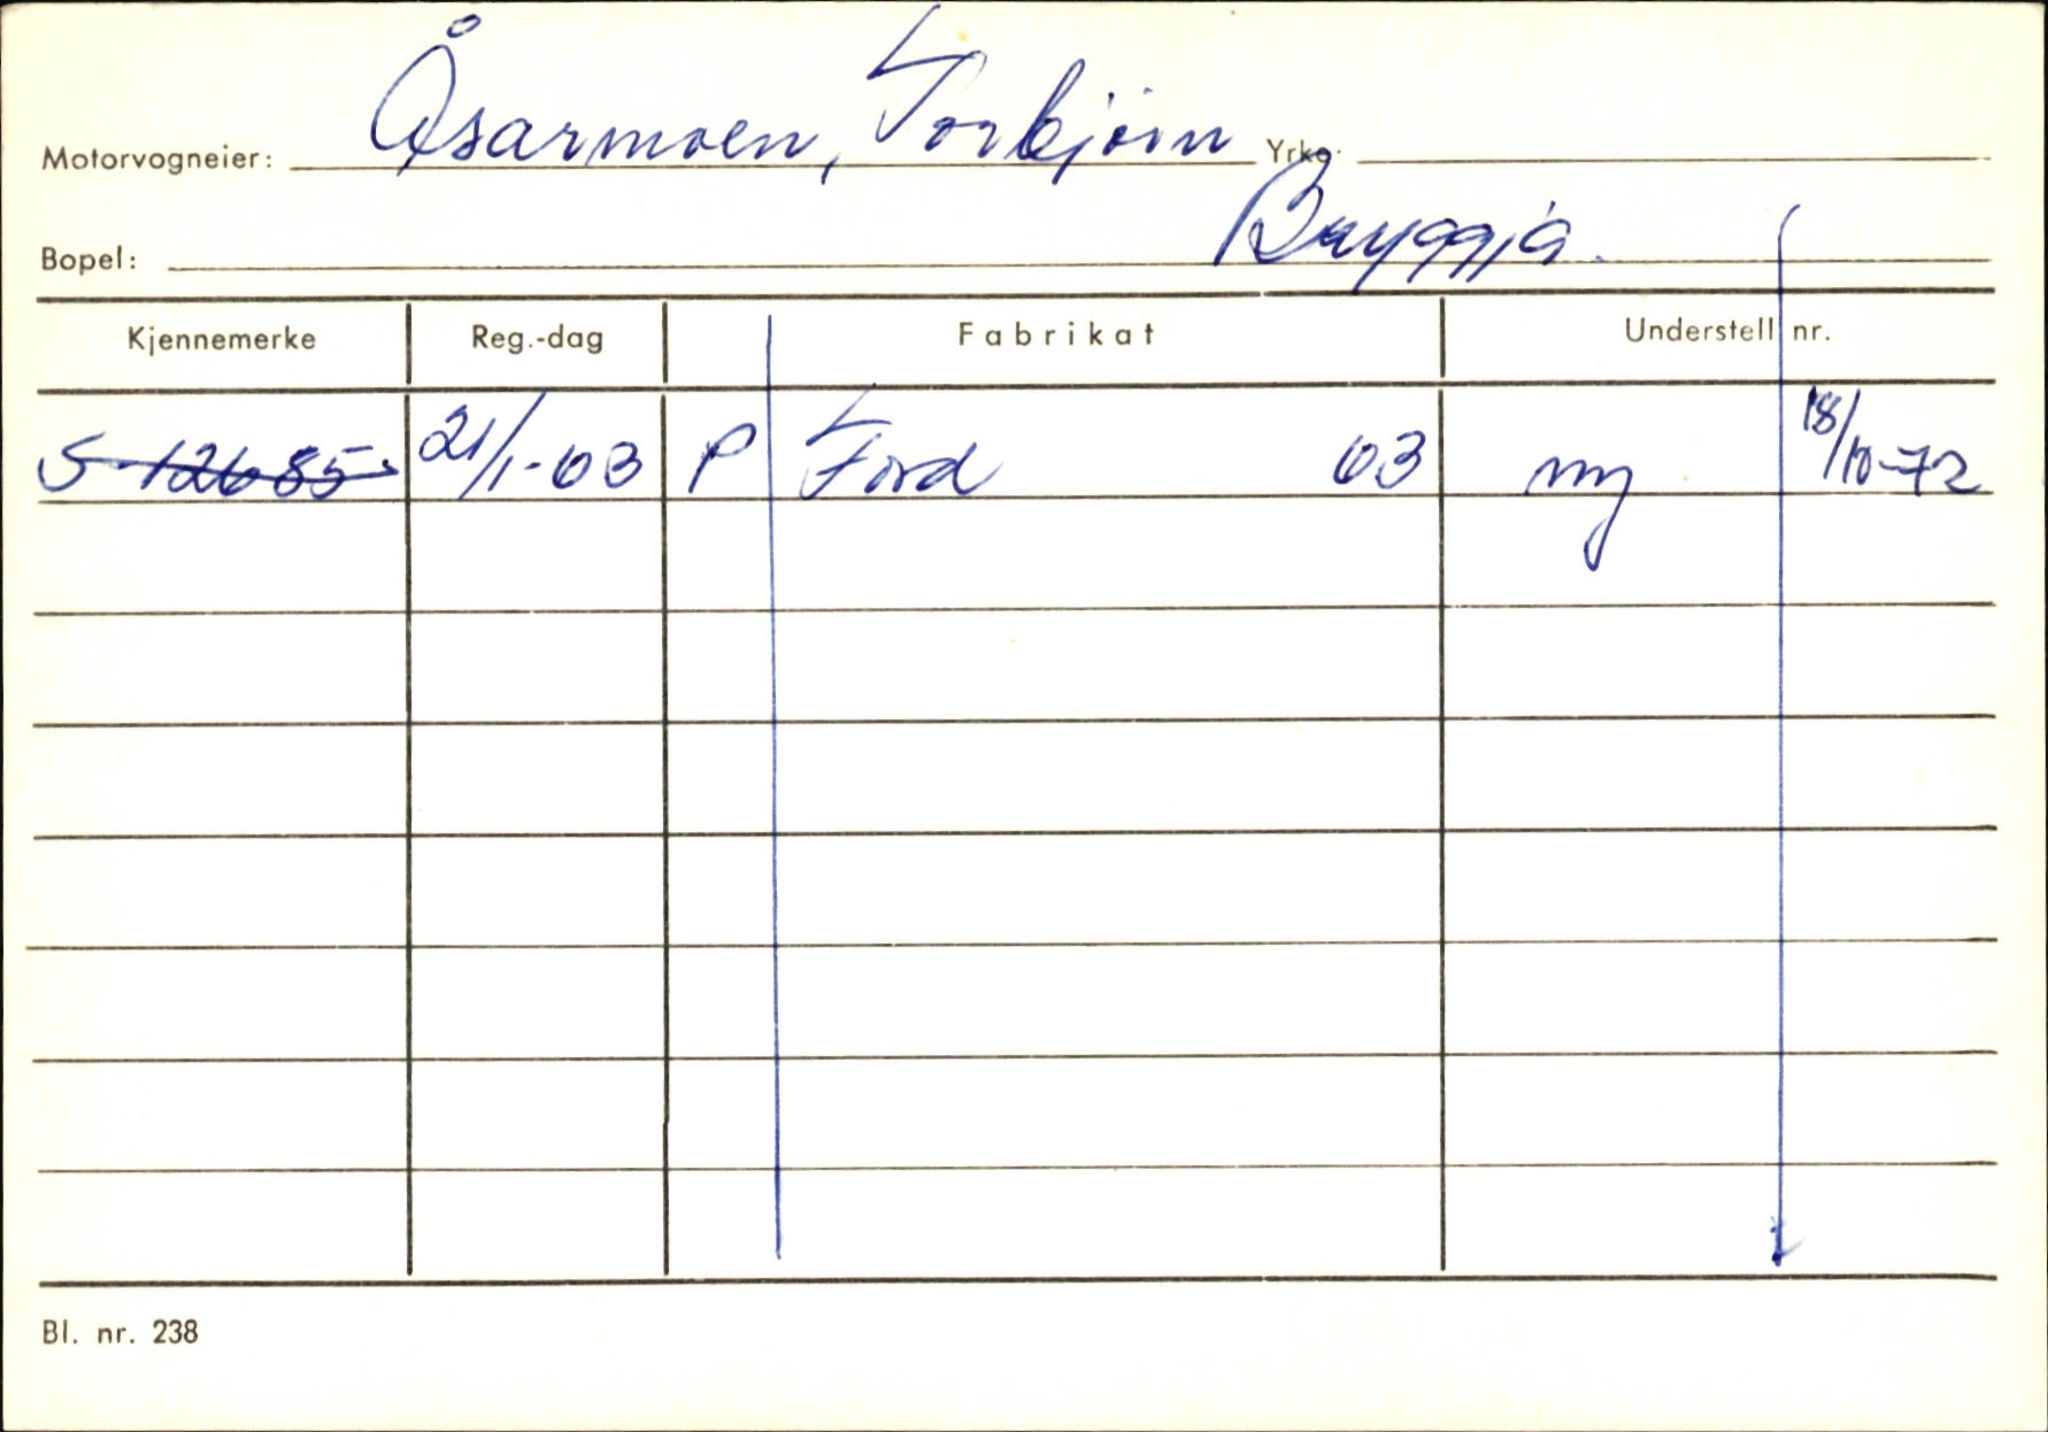 Motorvogneier: Åsarmoen, Torbjørn Yrke:
Bopel: Bryggja.
Kjennemerke Reg.-dag Fabrikat Understell nr.
S-12685 21/1-63 P Ford 63 ny 18/10-72
Bl. nr. 238